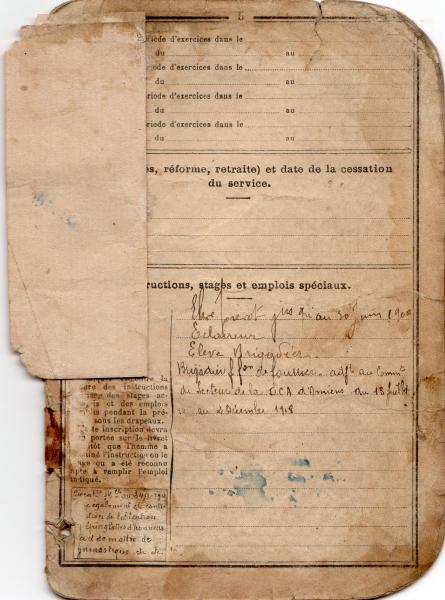 5
ériode d'exercices dans le
du au
ériode d'exercices dans le
du au
ériode d'exercices dans le
du au
ériode d'exercices dans le
du au
es, réforme, retraite) et date de la cessation
du service.
ructions, stages et emplois spéciaux.
Elève jusqu'au 30 juin 1909
Eclaireur
Elève Brigadier.
Brigadier f.on de fourrier adjt au Commt
du Secteur de la DCA d'Amiens du 18 juillet
au 2 Décembre 1918
ure des instructions
des stages ac-
is et des emplois
us pendant la pré-
sous les drapeaux.
te inscription devra
portée sur le livret
tôt que l'homme a
miné l'instruction ou le
ou a été reconnu
pte à remplir l'emploi
indiqué.
également
d'honneur
de maitre de
gymnastique etc.